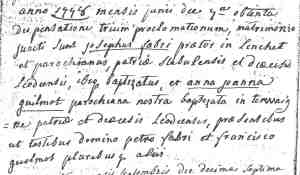 anno 1778 mensis junii die 7ma obtenta
dispensatione trium proclamationum, matrimonio
juncti sunt josephus fabri prætor in Lenchet
et parochianus, patriæ Stabulensis et diœcesis
Leodiensis, ibiq baptizatus, et anna joanna
guilmot parochiana nostra baptizata in
patriæ et diœcesis Leodiensis, præsentibus
ut testibus domino petro fabri et francisco
guilmot pluribusq aliis.
decima septima